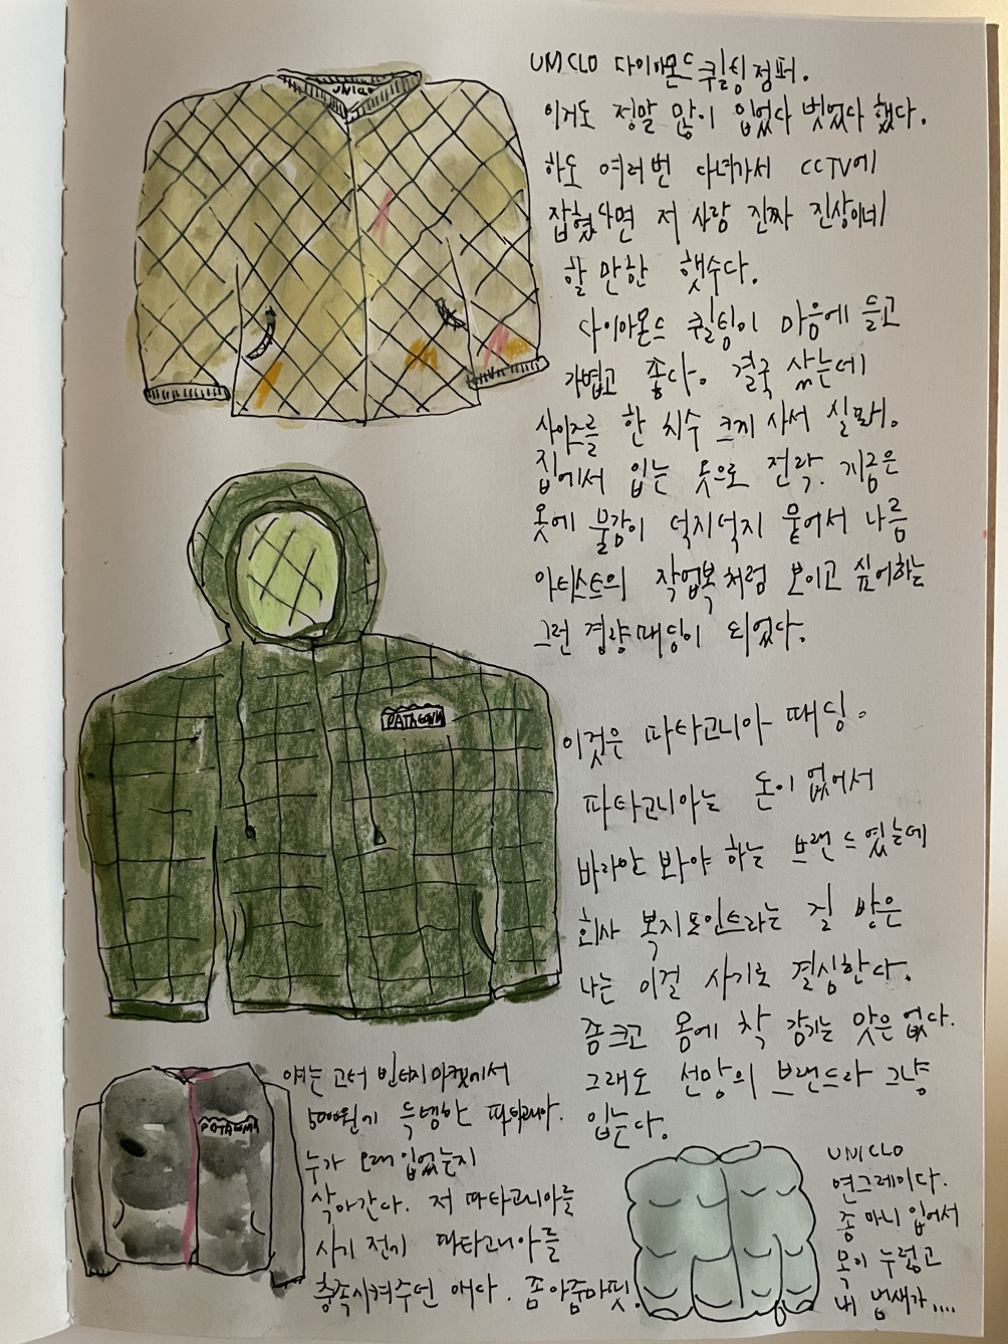 UNICLO
UNICLO 다이아몬드 퀼팅 점퍼.
이거도 정말 많이 입었다 벗었다 했다.
하도 여러번 다녀가서 CCTV에
잡혔다면 저 사람 진짜 진상이네
할 만한 횟수다.
다이아몬드 퀼팅이 마음에 들고
가볍고 좋다. 결국 샀는데
사이즈를 한 치수 크게 사서 실패.
집에서 입는 옷으로 전락. 지금은
옷에 물감이 덕지덕지 뭍어서 나름
아티스트의 작업복처럼 보이고 싶어하는
그런 경량패딩이 되었다.
PATAGONIA
이것은 파타고니아 패딩.
파타고니아는 돈이 없어서
바라만 봐야 하는 브랜드였는데
회사 복지포인트라는 걸 받은
나는 이걸 사기로 결심한다.
좀 크고 몸에 착 감기는 맛은 없다.
그래도 선망의 브랜드라 그냥
입는다.
PATAGONIA
얘는 고터 빈티지마켓에서
5000원에 득템한 파타고니아.
누가 오래 입었는지
삭아간다. 저 파타고니아를
사기 전기 파타고니아를
충족시켜주던 애다. 좀 아줌마핏.
UNICLO
연그레이다.
좀 마니 입어서
목이 누렇고
내 냄새가....